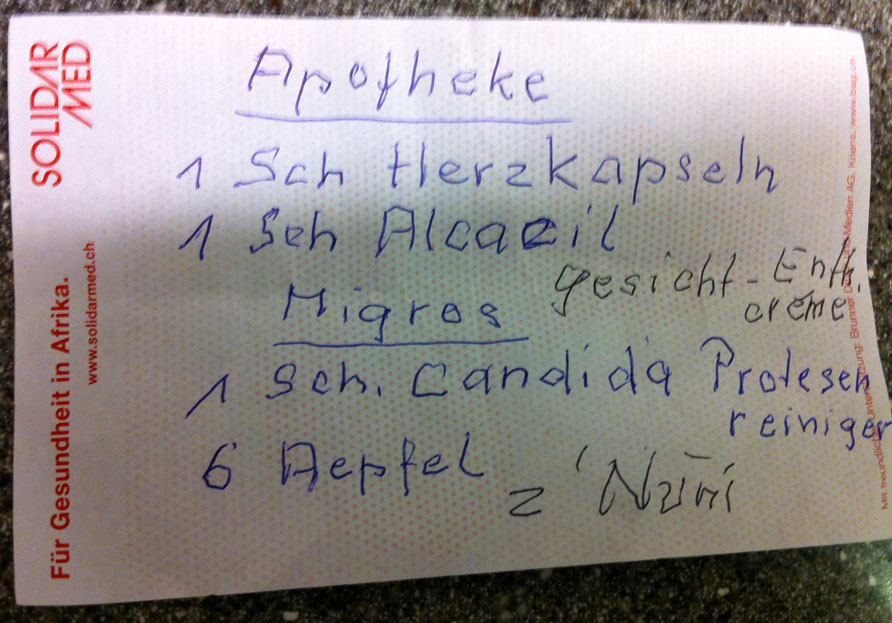 SOLIDAR
MED
Für Gesundheit in Afrika.
www.solidarmed.ch
Apotheke
1 Sch Herzkapseln
1 Sch Alcacil
Migros
Gesicht-Enth.
creme
1 Sch. Candida Protesen
reiniger
6 Aepfel
z'Nüni
Mit freundlicher Unterstützung: Brunner Druck und Medien AG, Kriens, www.bag.ch